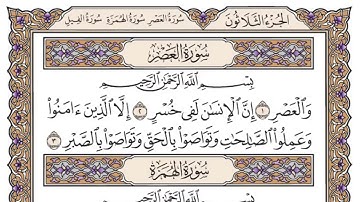 الجزء الثلاثون سورة العصر سورة الهمزة سورة الفيل
سورة العصر
بسم الله الرحمن الرحيم
وَالْعَصْرِ ١ إِنَّ الْإِنسَٰنَ لَفِى خُسْرٍ ٢ إِلَّا الَّذِينَ ءَامَنُوا
وَعَمِلُوا الصَّٰلِحَٰتِ وَتَوَاصَوْا بِالْحَقِّ وَتَوَاصَوْا بِالصَّبْرِ ٣
سورة الهمزة
بسم الله الرحمن الرحيم